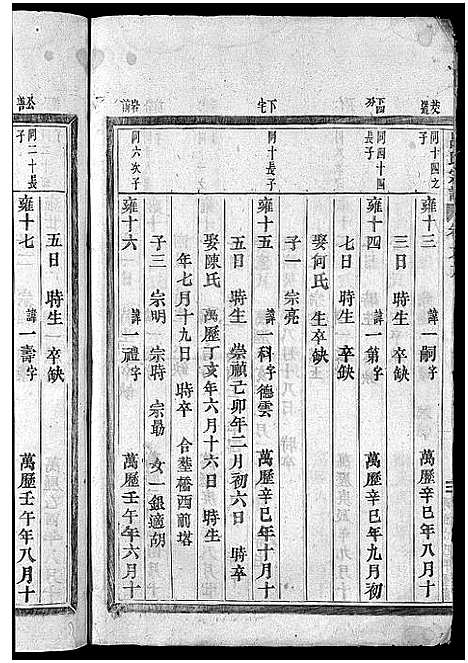 阿十四之
子
雍十三　諱一嗣字　萬歷辛巳年八月十
三日　時生　卒缺
阿四十四
長子
雍十四　諱一第字　萬歷辛巳年九月初
七日　時生　卒缺
娶何氏　生卒缺
子一　宗亮
下宅
阿十長子
雍十五　諱一科字德雲　萬歷辛巳年十月十
五日　時生　崇禎己卯年二月初六日　時卒
娶陳氏　萬歷丁亥年六月十六日　時生
年七月十九日　時卒　合塟橋西前塔
子三　宗明　宗時　宗最　女一銀適胡
岩前
阿六次子
雍十六　諱一禮字　萬歷壬午年六月十
阿二十長
子
雍十七　諱一壽字　萬歷壬午年八月十
五日　時生　卒缺